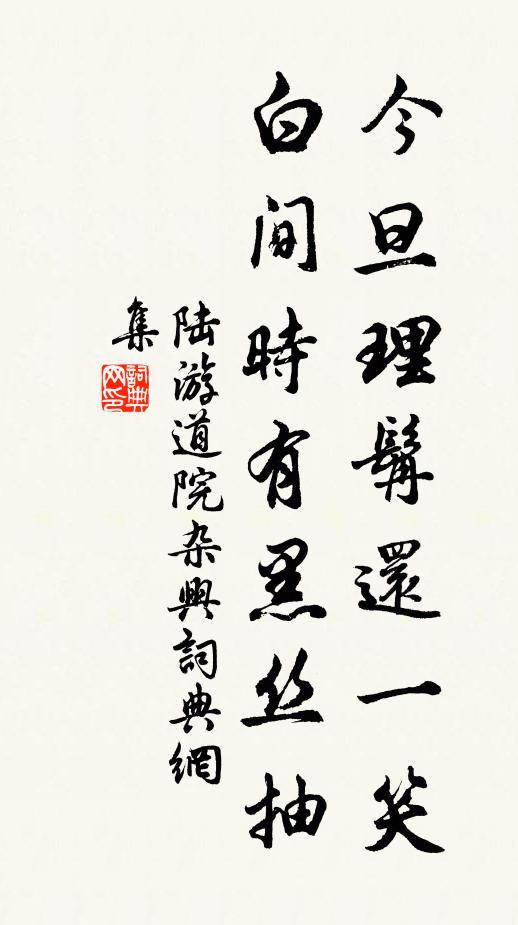 今旦理鬢還一笑
白間時有黑丝抽
陆游道院杂興詞典網
集
詞典
网印